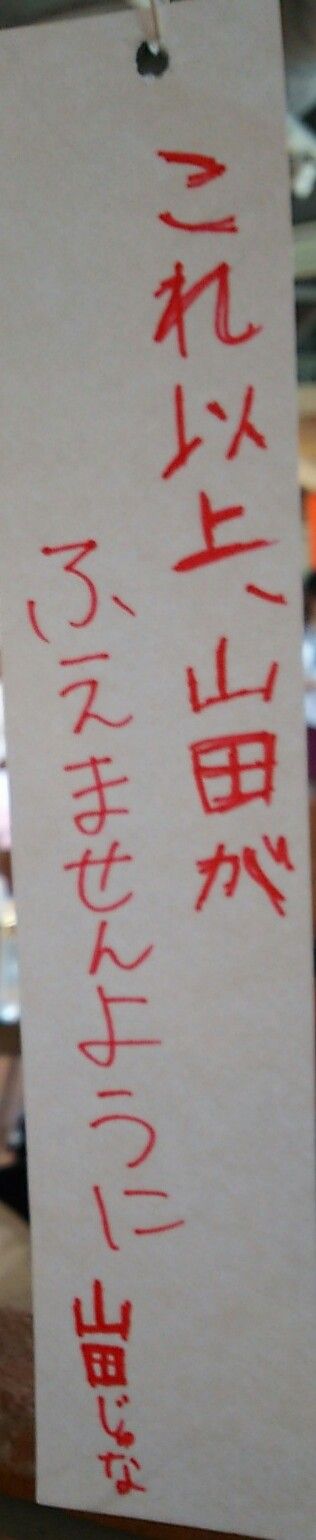 これ以上、山田が
ふえませんように
山田じゅな